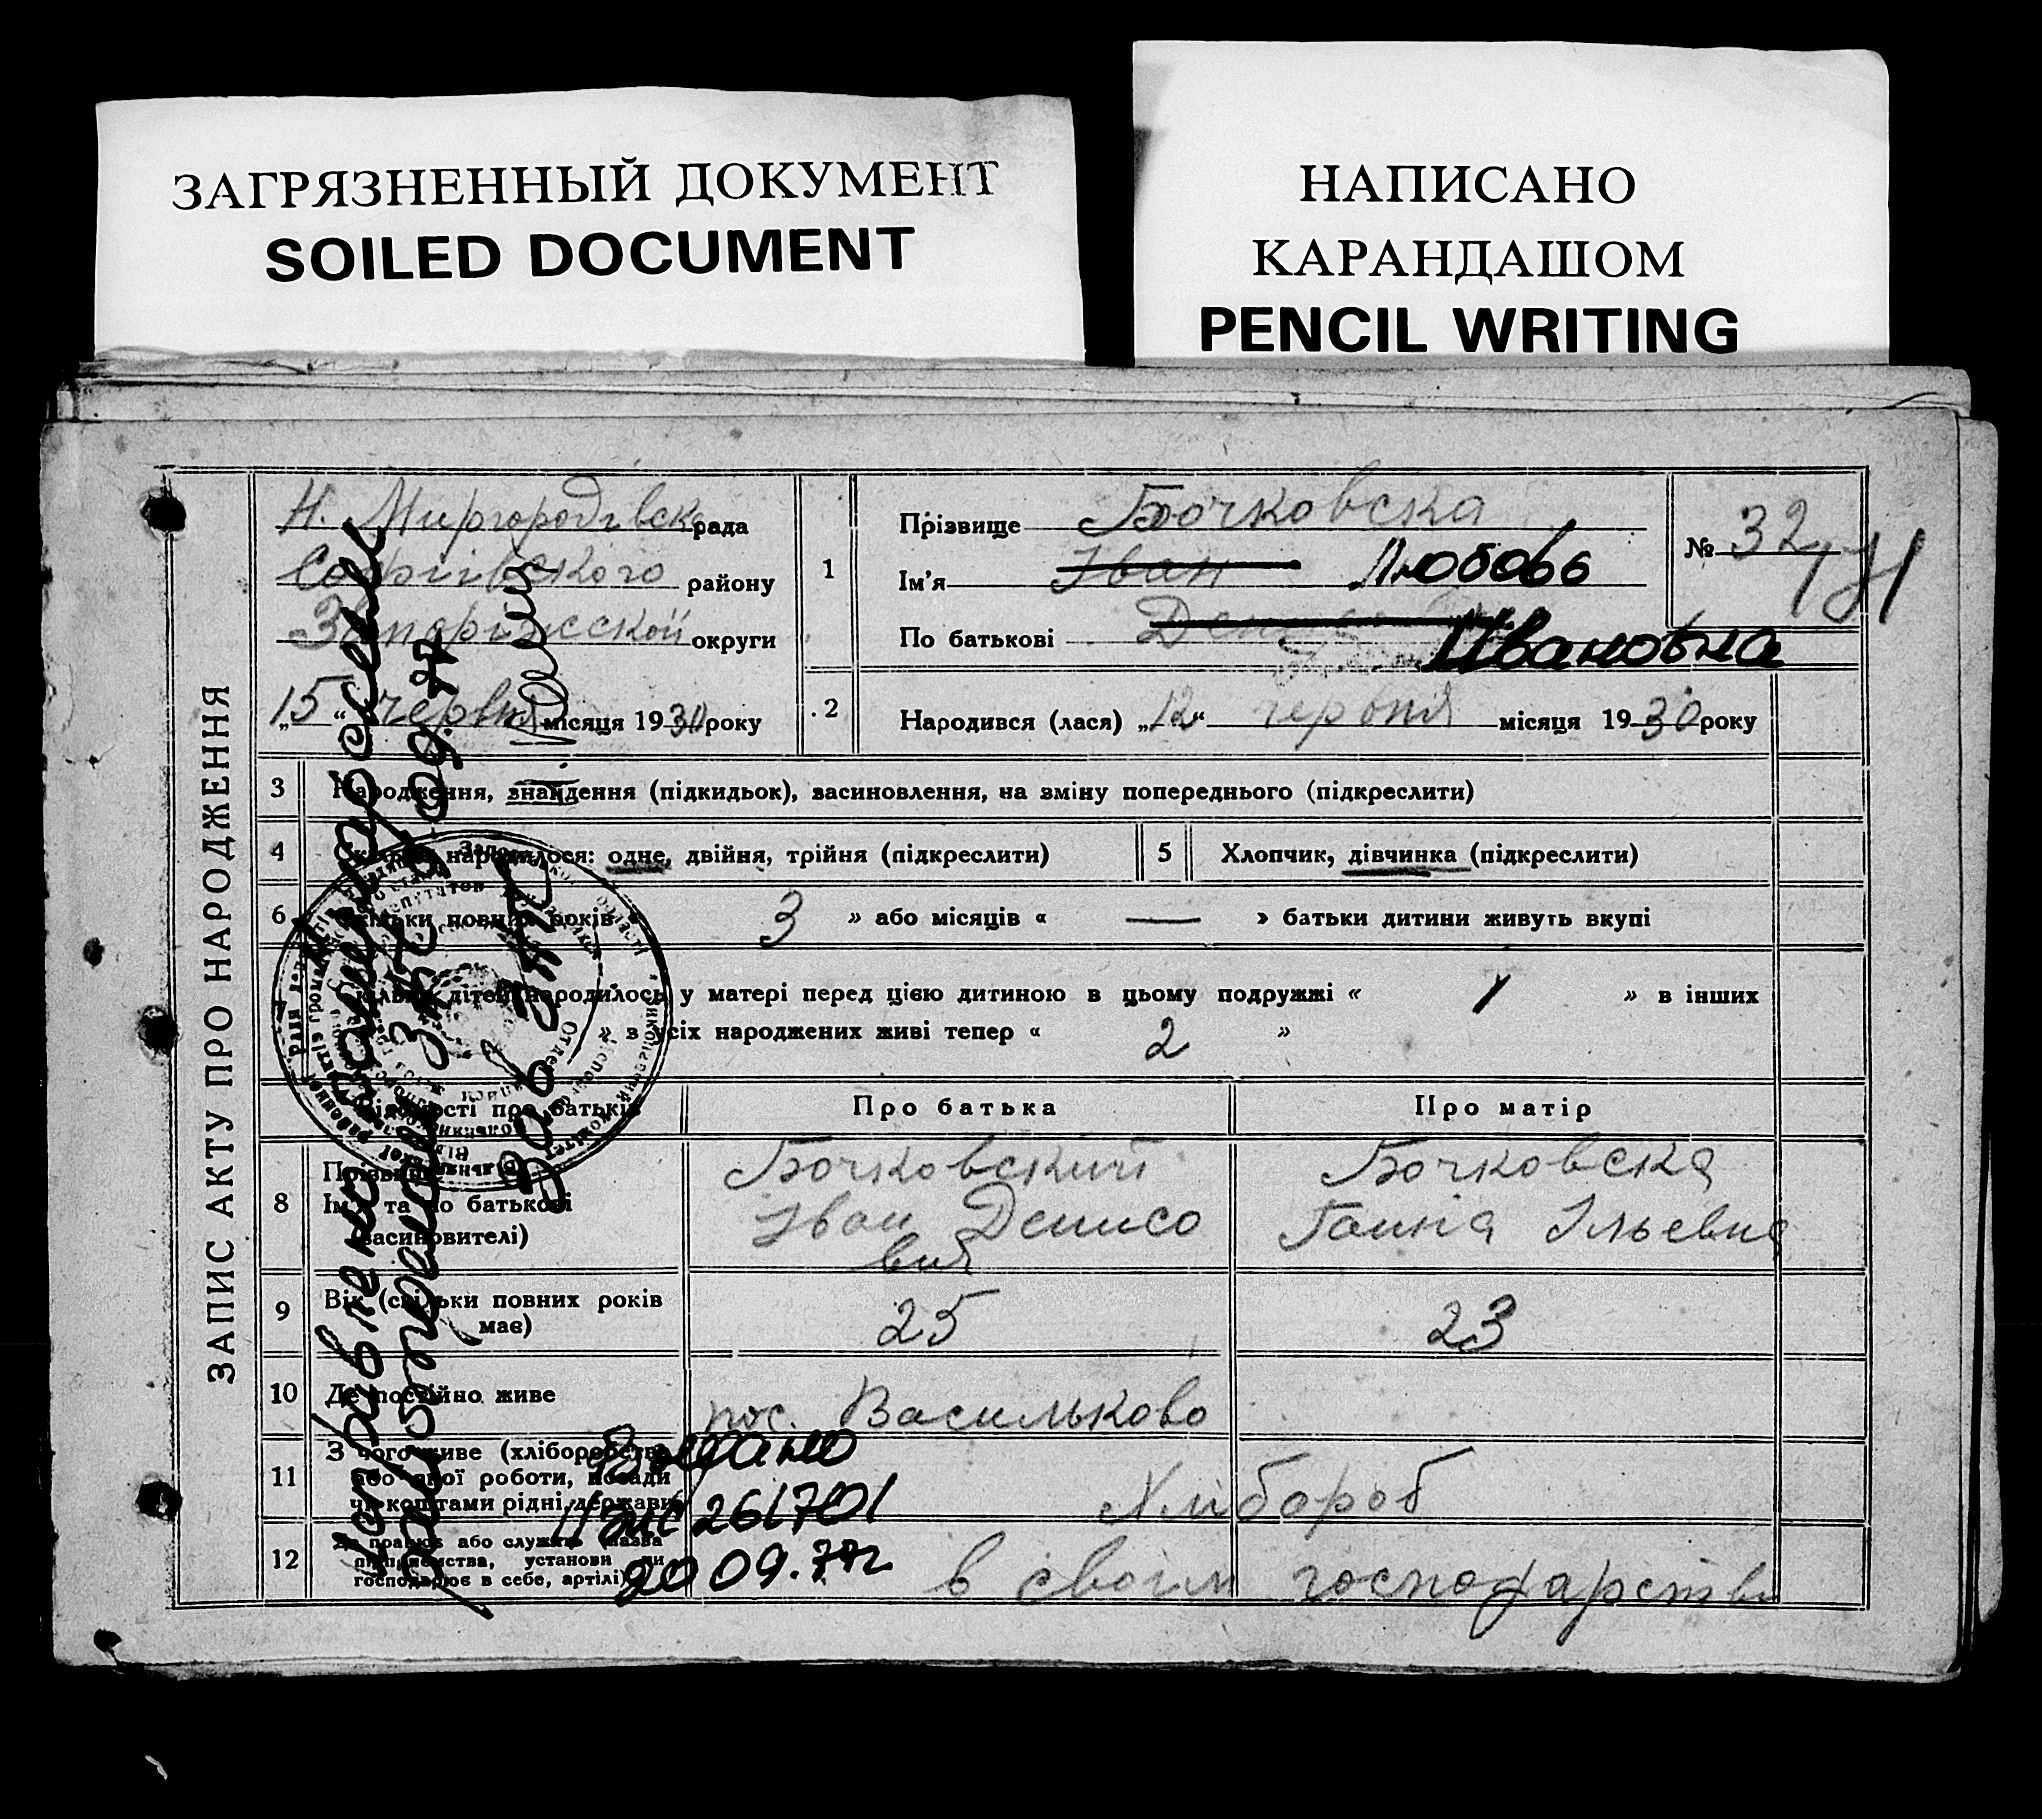 ЗАГРЯЗНЕННЫЙ ДОКУМЕНТ
SOILED DOCUMENT
НАПИСАНО
КАРАНДАШОМ
PENCIL WRITING
ЗАПИС АКТУ ПРО НАРОДЖЕННЯ
Н. Миргородівська рада
Софіївского району
Запоріжской округи
„15“ червня місяця 1930 року
1
Прізвище Бочковска
Ім'я Іван Любовь
По батькові Ивановна
№ 32
2
Народився (лася) „12“ червня місяця 1930 року
3 Народження, знайдення (підкидьок), васиновлення, на зміну попереднього (підкреслити)
4 народилося: одне, двійня, трійня (підкреслити)
5 Хлопчик, дівчинка (підкреслити)
6 Скільки повних років « 3 » або місяців « — » батьки дитини живуть вкупі
7 Скільки дітей народилось у матері перед цією дитиною в цьому подружжі « 1 » в інших
» в усіх народжених живі тепер « 2 »
Відомості про батьків
Про батька
Про матір
8 Прізвище
Ім'я та по батькові
(васиновителі)
Бочковский
Іван Денисо
вич
Бочковска
Ганна Ільевна
9 Вік (скільки повних років
має)
25
23
10 Де постійно живе
пос. Васильково
11 З чого живе (хліборобства
або якої роботи, посади
чи коштами рідні, держави
Хлібороб
12 Де працює або служить (назва
підприємства, установи чи
господарює в себе, артілі)
в своїм господарстві
Исправленно
20.09.77
Зав.
Выдано
261701
20 09.77г